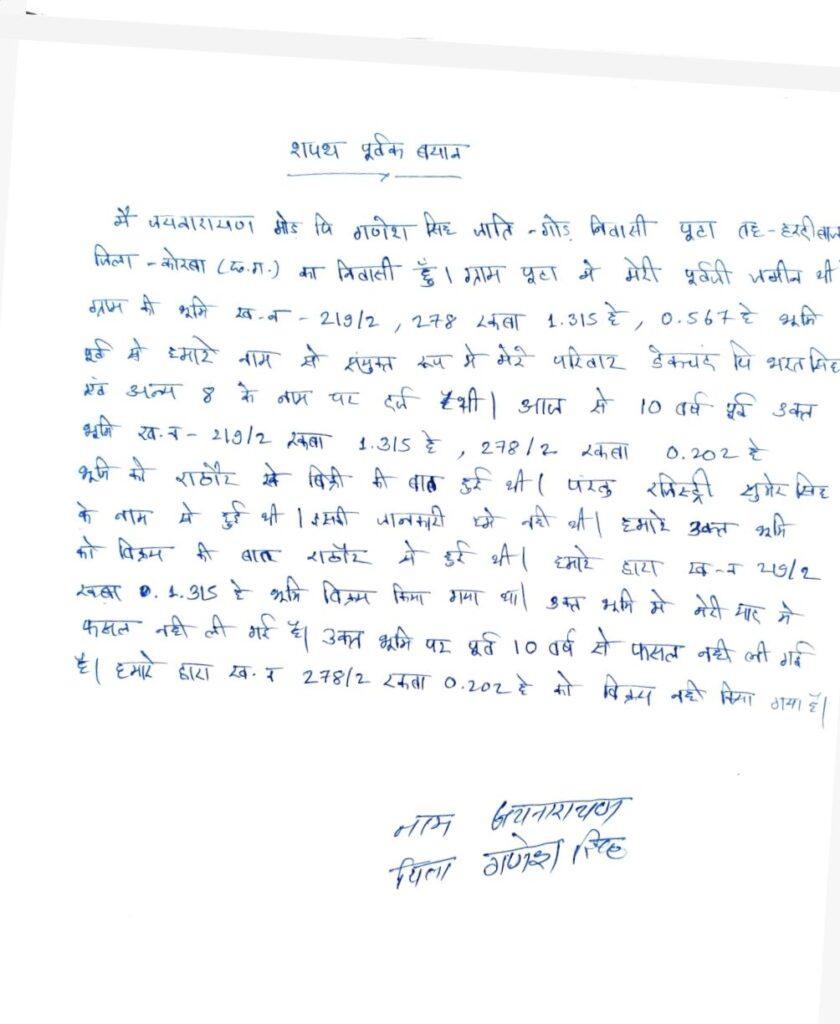 शपथ पूर्वक बयान
मै जयनारायण गोड़ पि गणेश सिंह जाति - गोड़ निवासी पूटा तह - हरदीबाजा
जिला - कोरबा (छ.ग.) का निवासी हुँ। ग्राम पूटा मे मेरी पूर्वजी जमीन थी
ग्राम की भूमि ख.न - 219/2 , 278 रकबा 1.315 हे , 0.567 हे भूमि
पूर्व से हमारे नाम से संयुक्त रूप मे मेरे परिवार टेकचंद पि भरतसिंह
एवं अन्य 8 के नाम पर दर्ज थी। आज से 10 वर्ष पूर्व उक्त
भूमि ख.न - 219/2 रकबा 1.315 हे , 278/2 रकबा 0.202 हे
भूमि को राठौर से बिक्री की बात हुई थी। परंतु रजिस्ट्री सुमेर सिंह
के नाम से हुई थी। इसकी जानकारी हमे नही थी। हमारे उक्त भूमि
को विक्रय की बात राठौर से हुई थी। हमारे द्वारा ख.न 219/2
रकबा 1.315 हे भूमि विक्रय किया गया था। उक्त भूमि मे मेरी याद मे
फसल नही ली गई है। उक्त भूमि पर पूर्व 10 वर्ष से फसल नही ली गई
है। हमारे द्वारा ख.न 278/2 रकबा 0.202 हे को विक्रय नही किया गया है।
नाम जयनारायण
पिता गणेश सिंह